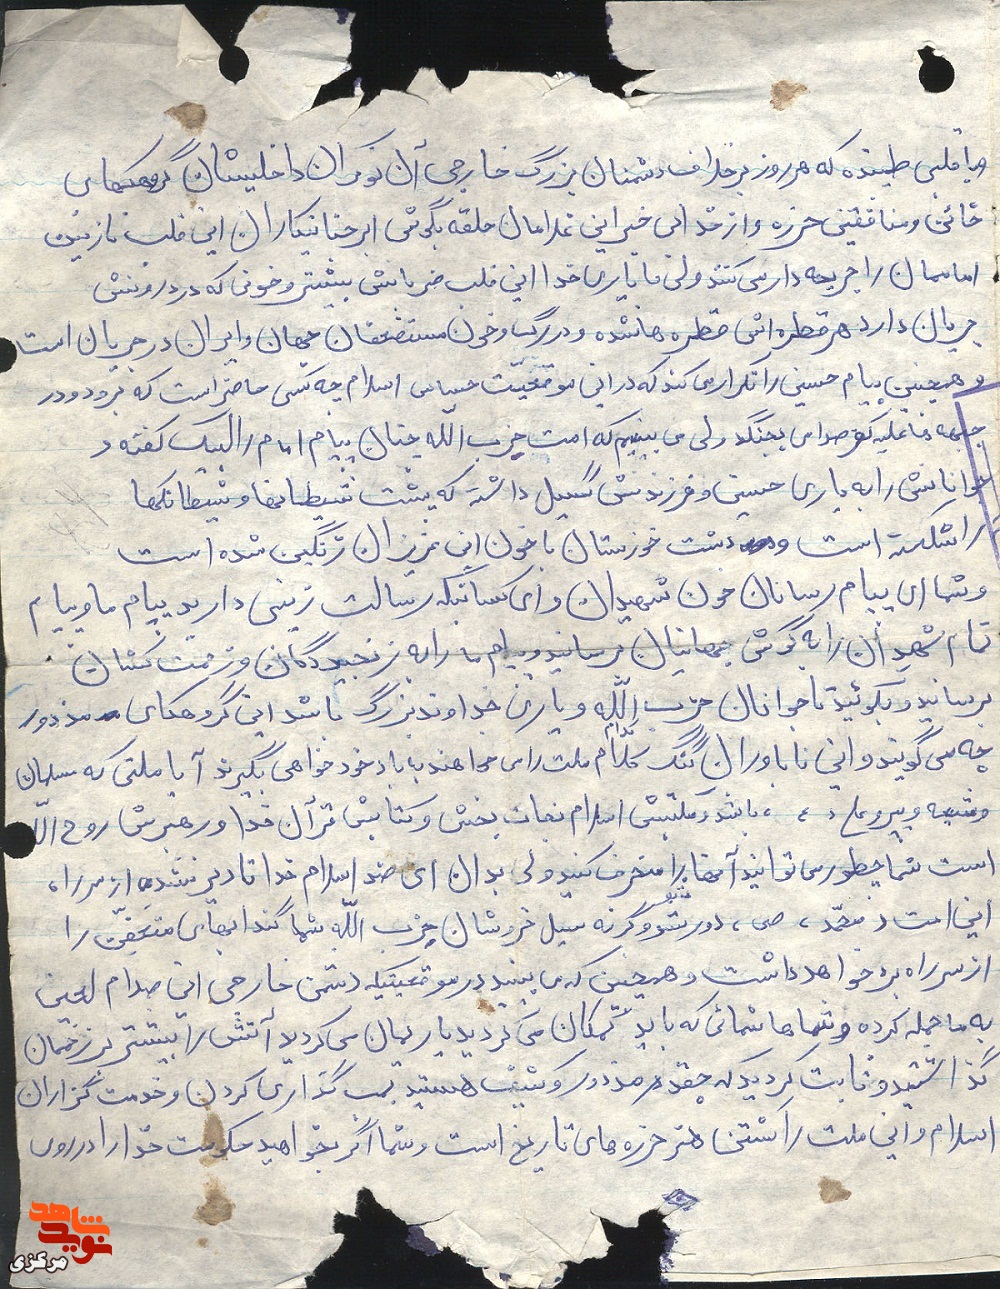 با قلبی طپنده که هر روز بر خلاف دشمنان بزرگ خارجی آن نوکران داخلیشان گروهکهای
خائن و منافقین حرزه و از خدا بی خبر این غلامان حلقه بگوش ابر جنایتکاران این قلب نازنین
امامان را جریحه دار می کنند ولی با یاری خدا این قلب ضربانش بیشتر و خونی که در درونش
جریان دارد هر قطره اش قطره ها شده و در رگ و خون مستضعفان جهان و ایران در جریان است
و همچنین پیام حسینی را تکرار می کند که در این موقعیت حساس اسلام چه کسی حاضر است که برود و در
جبهه ها علیه کفر صدامی بجنگد ولی می بینیم که امت حزب اللّه چنان پیام امام را لبیک گفته و
جوانانش را به یاری حسین و فرزندش گسیل داشته که پشت شیطانها و شیطانکها
را شکسته است و دشت خوزستان با خون این عزیزان رنگین شده است
و شما ای پیام رسانان خون شهیدان و ای کسانیکه رسالت زینبی دارید پیام ما و پیام
تمام شهیدان را به گوش جهانیان برسانید و پیام ما را به رنجیدگان و زحمت کشان
برسانید و بگوئید تا جوانان حزب اللّه و یاری خداوند بزرگ باشد این گروهکهای مزدور
چه می گویند و این ناباوران گنگ کدام ملت را می خواهند به باد خود خواهی بگیرند آیا ملتی که مسلمان
و شیعه و پیرو علی ، ع ، باشد و مکتبش اسلام نجات بخش و کتابش قرآن خدا و رهبرش روح اللّه
است شما چطور می توانید آنها را منحرف کنید ولی بدان ای ضد اسلام خدا تا دیر نشده از سر راه
این امت محمّد ، ص ، دور شو و گرنه سیل خروشان حزب اللّه شما گندابهای متعفّن را
از سر راه بر خواهد داشت و همچنین که می بینید در موقعیتیکه دشمن خارجی این صدام لعین
به ما حمله کرده و شماها شمائی که باید کمکمان می کردید یاریمان می کردید آتش را بیشتر بر زخممان
گذاشتید و ثابت کردید که چقدر مزدور و کثیف هستید بمب گذاری کردن و خدمت گزاران
اسلام و این ملت را کشتن هنر حرزه های تاریخ است و شما اگر بخواهید حکومت خدا را در روی
نوید شاهد
مرکزی